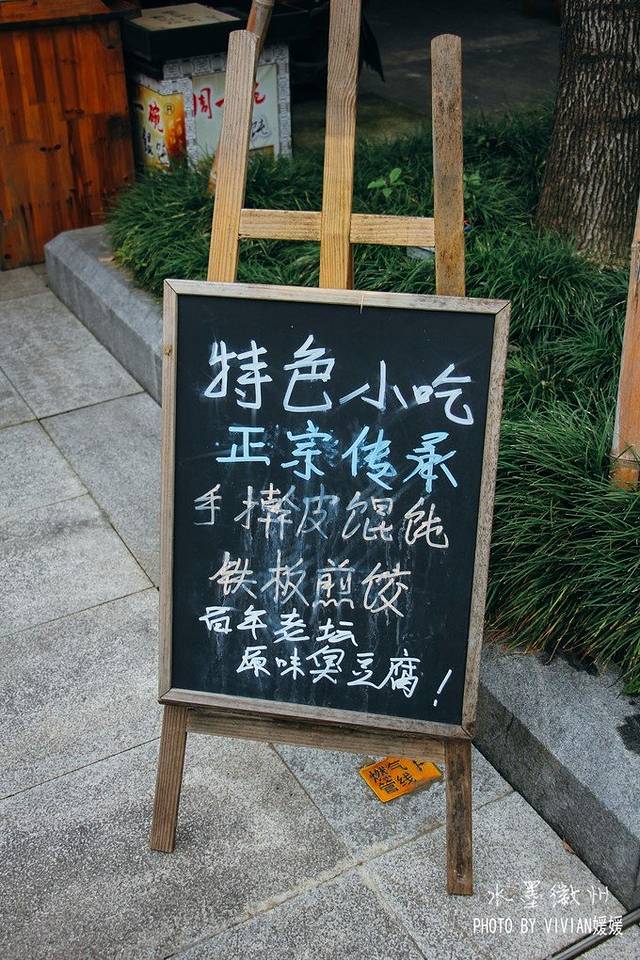 周一
碗
特色小吃
正宗传承
手擀皮馄饨
铁板煎饺
百年老坛
原味臭豆腐！
燃气
管线
水墨徽州
PHOTO BY VIVIAN媛媛